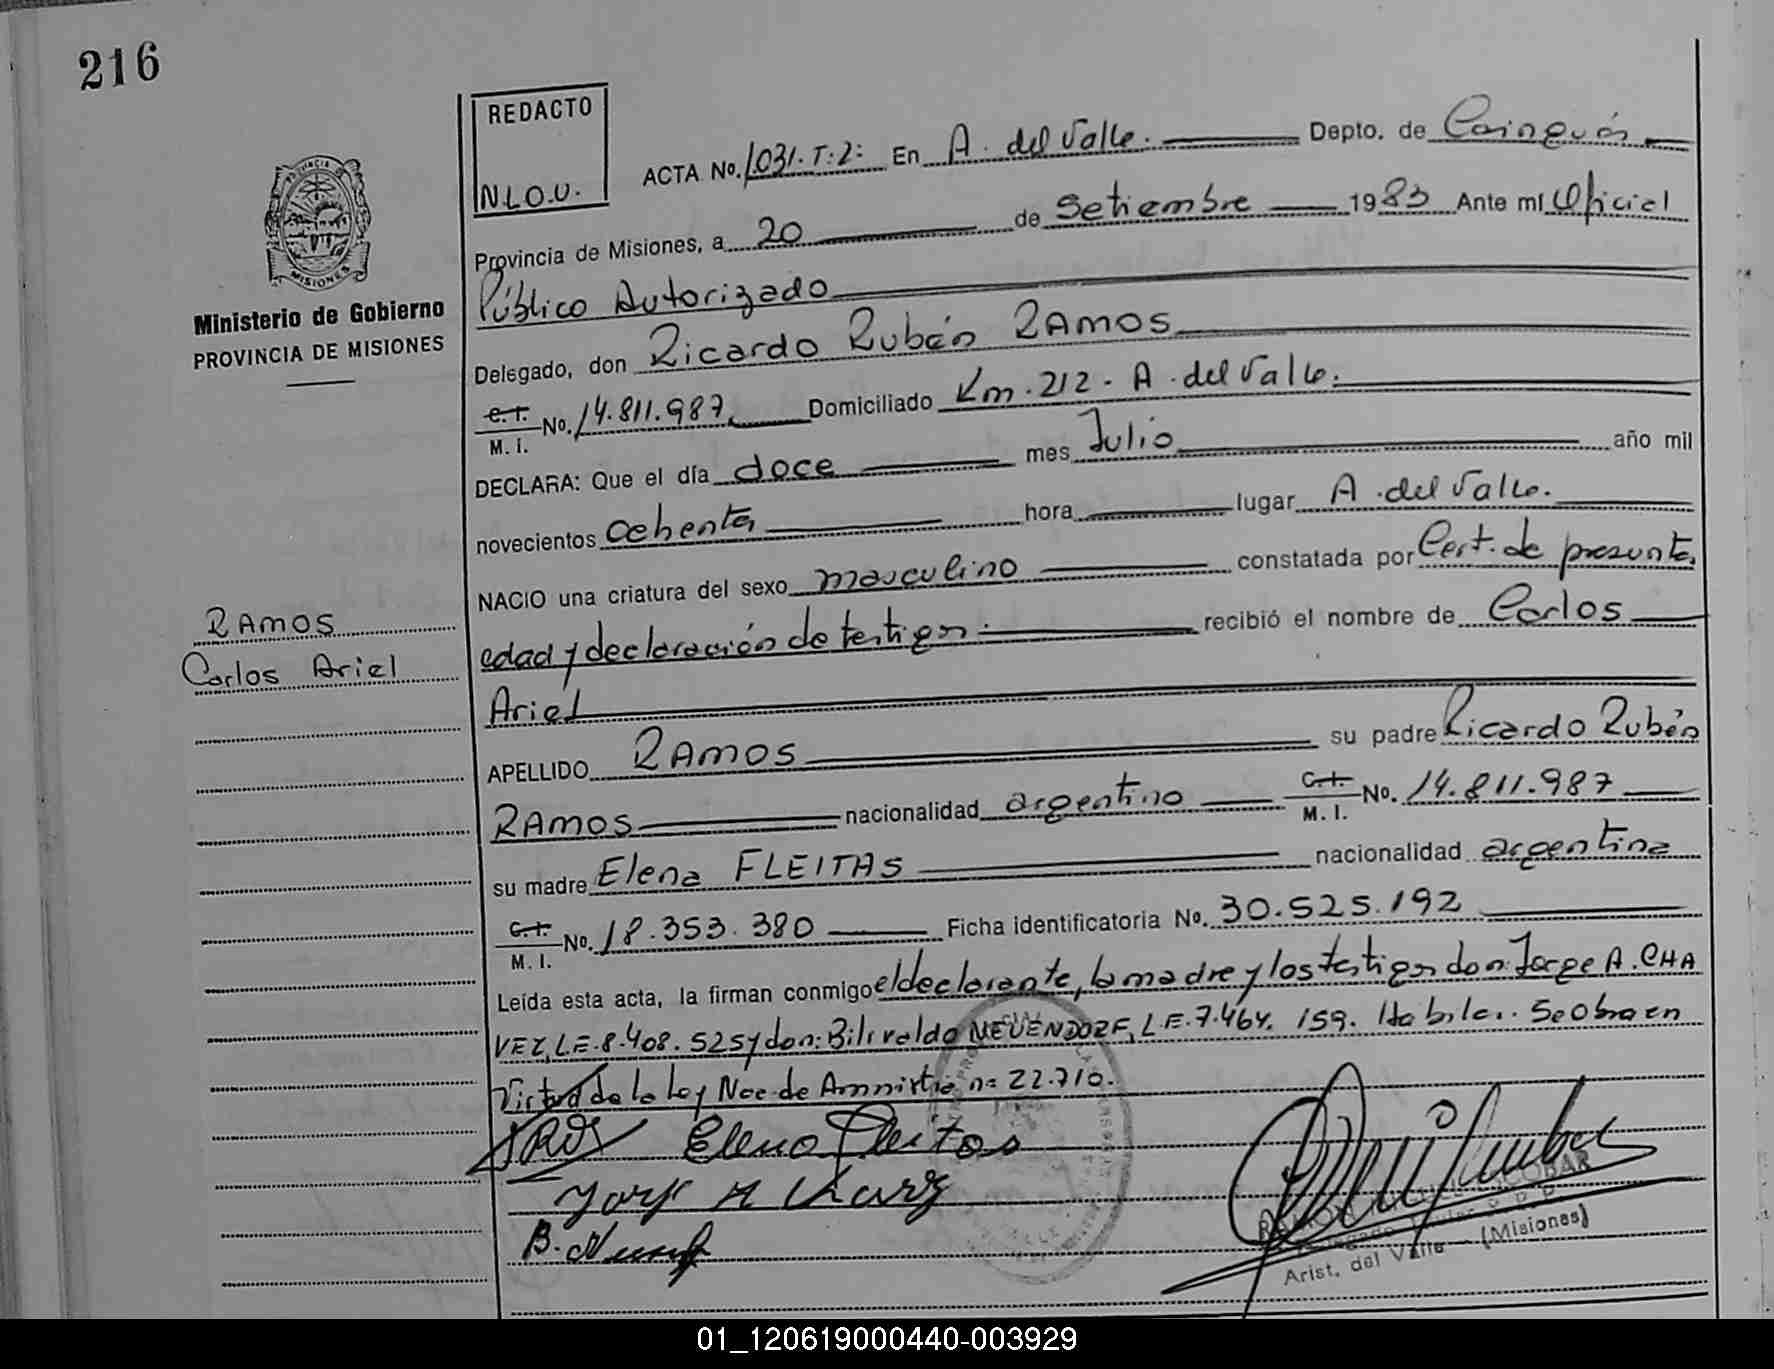 216
REDACTO
N.L.O.U.
ACTA No. 1031.T:2: En A. del Valle. Depto. de Cainguás
Provincia de Misiones, a 20 de Setiembre 1983 Ante mí Oficial
Público Autorizado
Delegado, don Ricardo Rubén RAMOS
C.I.
M. I. No. 14.811.987 Domiciliado Km. 212. A. del Valle.
DECLARA: Que el día doce mes Julio año mil
novecientos ochenta hora lugar A. del Valle.
NACIO una criatura del sexo masculino constatada por Cert. de presunta
edad y declaración de testigos. recibió el nombre de Carlos
Ariel
APELLIDO RAMOS su padre Ricardo Rubén
RAMOS nacionalidad argentino C.I.
M. I. No. 14.811.987
su madre Elena FLEITAS nacionalidad argentina
C.I.
M. I. No. 18.353.380 Ficha identificatoria No. 30.525.192
Leída esta acta, la firman conmigo el declarante, la madre y los testigos don: Jorge A. CHA
VEZ, L.E. 8.408.525 y don: Bilivaldo NEUENDORF, L.E. 7.464.159. Hábiles. Se Obra en
Virtud de la Ley Nac. de Amnistía nº 22.710.
Elena Fleitas
Jorge A Chavez
B.
Arist. del Valle - (Misiones)
PROVINCIA
MISIONES
Ministerio de Gobierno
PROVINCIA DE MISIONES
RAMOS
Carlos Ariel
01_120619000440-003929